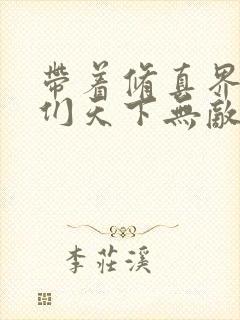 帶着修真界
们天下無敵
李莊溪